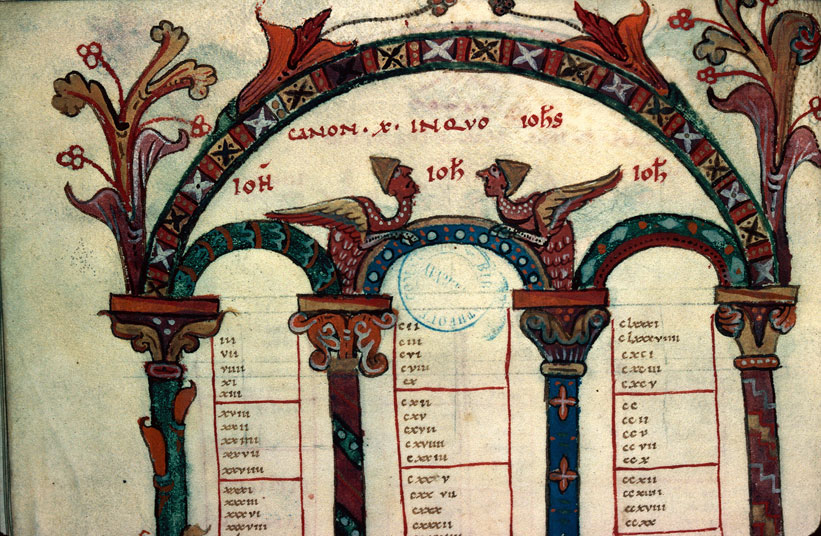 CANON · X · IN QUO IOHS
IOH IOH IOH
III
VII
VIIII
XI
XIII
XVIII
XXII
XXIIII
XXVII
XXVIIII
XXXI
XXXIII
XXXVI
XXXVIII
CII
CIII
CVI
CVIII
CX
CXII
CXV
CXVII
CXVIIII
CXXIII
CXXXV
CXXVII
CXXX
CXXXII
CLXXXI
CLXXXVIIII
CXCI
CXCIII
CXCV
CC
CCII
CCV
CCVII
CCX
CCXII
CCXVIII
CCXX